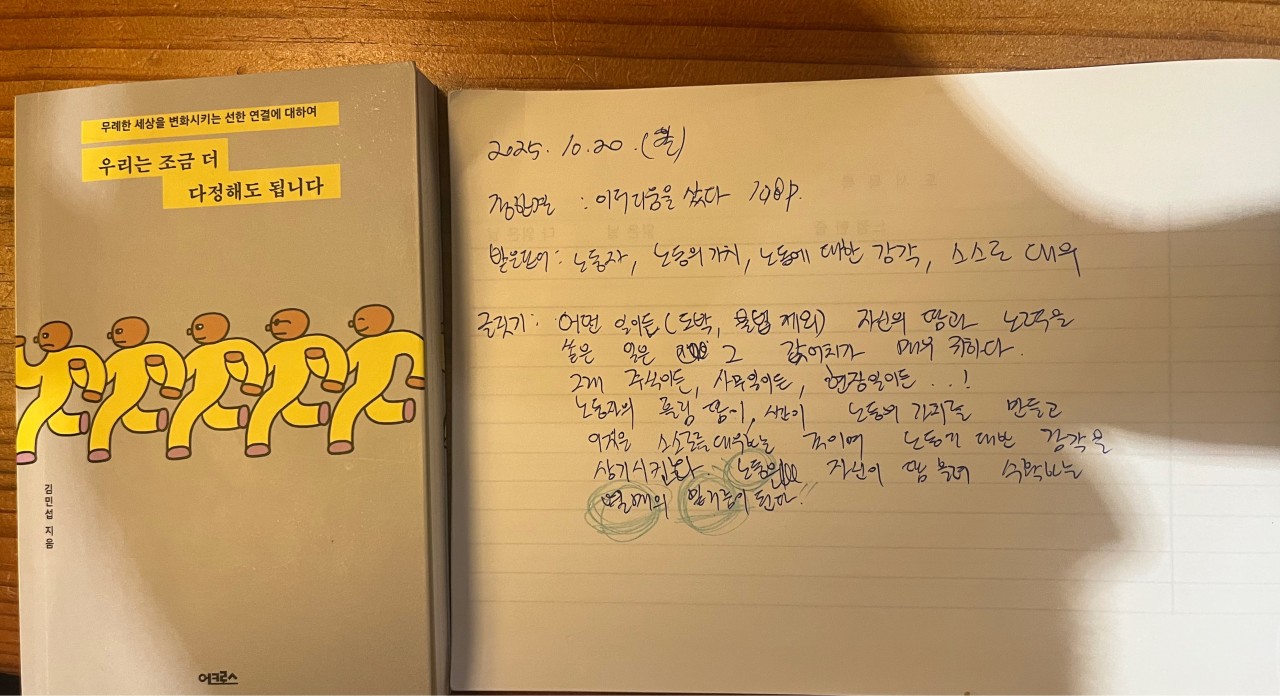 무례한 세상을 변화시키는 선한 연결에 대하여
우리는 조금 더
다정해도 됩니다
김민섭 지음
어크로스
2025. 10. 20. (월)
: 을 샀다 108p.
받은단어: 노동자, 노동의 가치, 노동에 대한 감각, 스스로 대위
글짓기: 어떤 일이든 (도박, 불법 제외) 자신의 땀과 노력을
쏟은 일은 그 값어치가 매우 귀하다.
그게 주식이든, 사무일이든, 현장일이든..!
노동자의 흘린 땀이, 시간이 노동의 가치를 만들고
이것은 스스로를 노동에 대한 감각을
상기시킨다. 자신이 땀 흘려 수확하는
열매의 된다!!